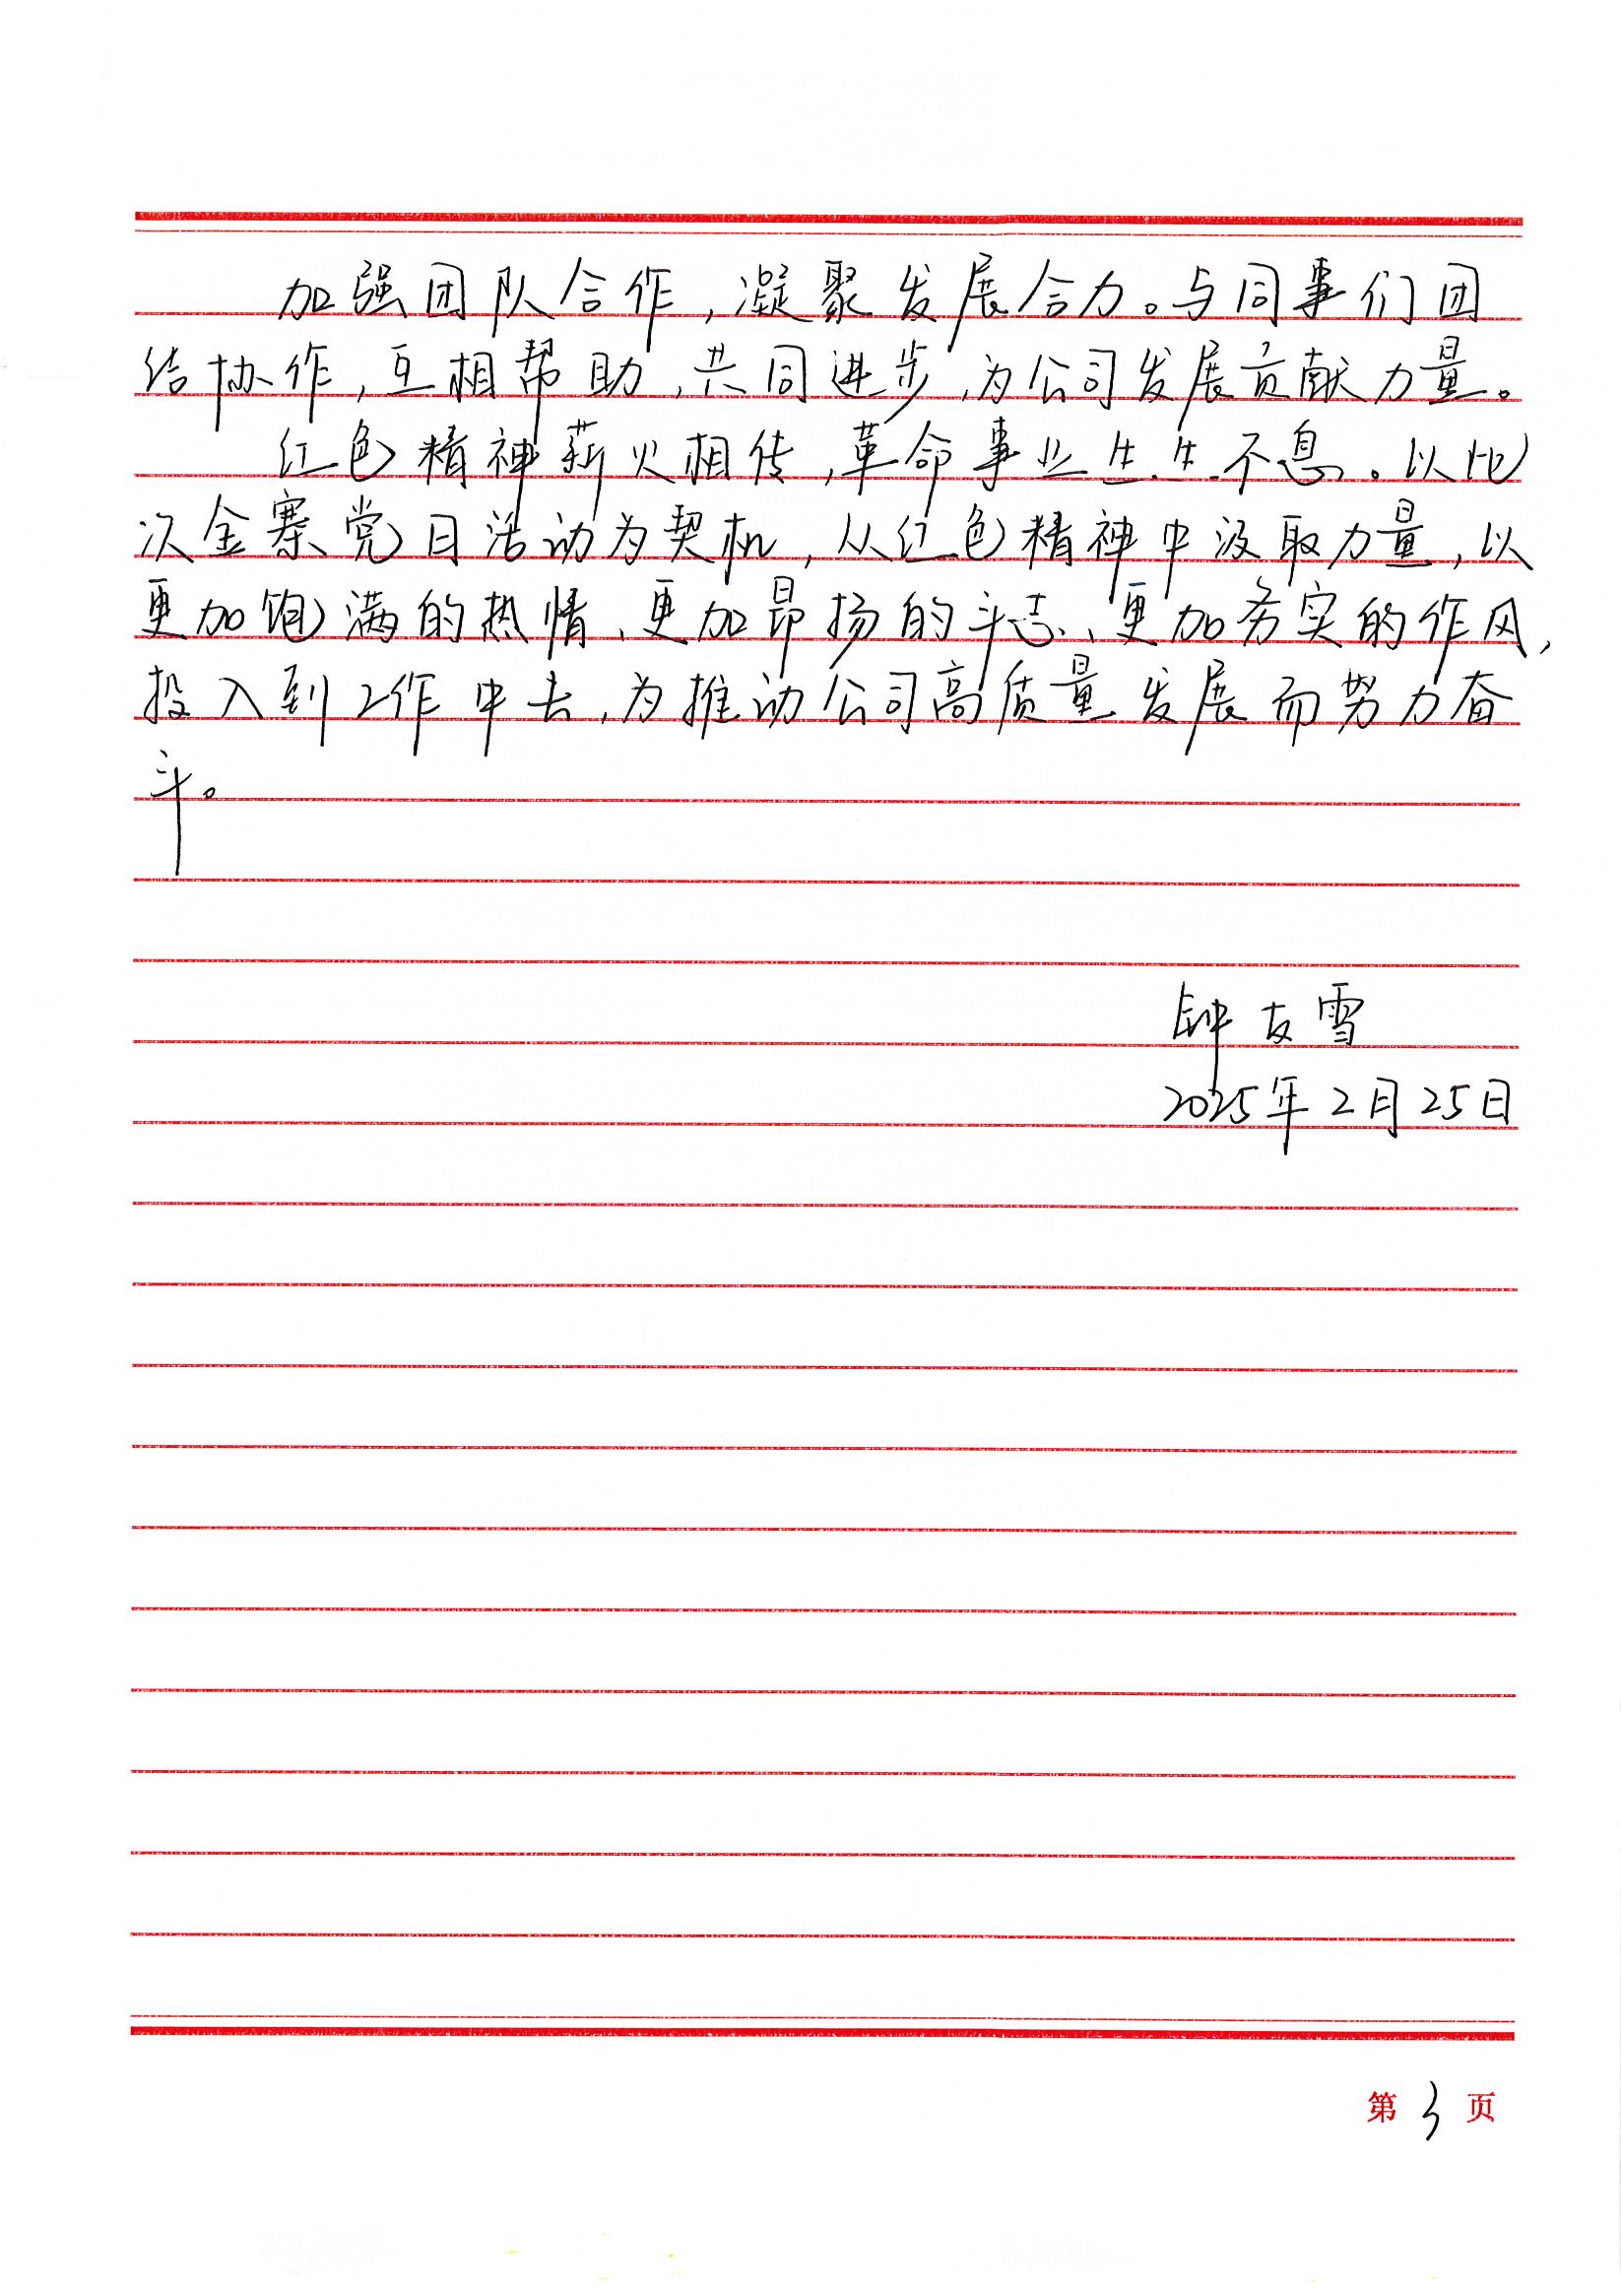 加强团队合作，凝聚发展合力。与同事们团
结协作，互相帮助，共同进步，为公司发展贡献力量。
红色精神薪火相传，革命事业生生不息。以此
次金寨党日活动为契机，从红色精神中汲取力量，以
更加饱满的热情、更加昂扬的斗志、更加务实的作风，
投入到工作中去，为推动公司高质量发展而努力奋
斗。
钟友雪
2025年2月25日
第3页